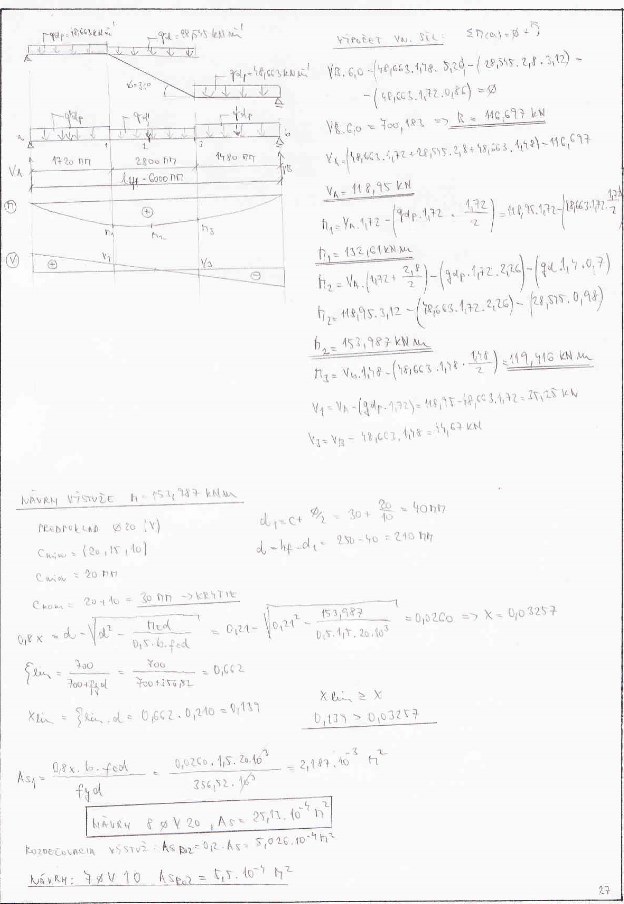 gdp=48,663 kNm⁻¹ gd=28,545 kNm⁻¹
gdp=48,663 kNm⁻¹
gdp gd gdp
a 1 2 3 b
1720 mm 2800 mm 1480 mm
VA
6000 mm
M ⊕
M1 M2 M3
V ⊕ V1 V3 ⊖
VÝPOČET VN. SÍL:
VB.6,0 - (48,663.1,48.5,26) - (28,545.2,8.3,12) -
- (48,663.1,72.0,86) = ∅
VB.6,0 = 700,183 => B = 116,697 kN
VA = (48,663.1,72 + 28,545.2,8 + 48,663.1,48) - 116,697
VA = 118,95 kN
M1 = VA.1,72 - (gdp.1,72 . 1,72/2) = 118,95.1,72 - (48,663.1,72.1,72/2)
M1 = 132,61 kNm
M2 = VA.(1,72 + 2,8/2) - (gdp.1,72.2,26) - (gd.1,4.0,7)
M2 = 118,95.3,12 - (48,663.1,72.2,26) - (28,545.0,98)
M2 = 153,987 kNm
M3 = VB.1,48 - (48,663.1,48.1,48/2) = 119,416 kNm
V1 = VA - (gdp.1,72) = 118,95 - 48,663.1,72 = 35,25 kN
V3 = VB - 48,663.1,48 = 44,67 kN
NÁVRH VÝSTUŽE M = 153,987 kNm
PREDPOKLAD Ø20 (V)
d1 = c + Ø/2 = 30 + 20/10 = 40 mm
cmin = {20, 15, 10}
d = hp - d1 = 250 - 40 = 210 mm
cmin = 20 mm
cnom = 20 + 10 = 30 mm -> KRYTIE
0,8x = d - √(d² - MEd/(0,5.b.fcd)) = 0,21 - √(0,21² - 153,987/(0,5.1,5.20.10³)) = 0,0260 => x = 0,03257
ξlim = 700/(700+fyd) = 700/(700+356,52) = 0,662
xlim = ξlim . d = 0,662 . 0,210 = 0,139
xlim ≥ x
0,139 > 0,03257
As1 = 0,8x . b . fcd / fyd = 0,0260 . 1,5 . 20 . 10³ / 356,52 . 10³ = 2,187.10⁻³ m²
NÁVRH 8 Ø V 20, As = 25,13.10⁻⁴ m²
ROZDEĽOVACIA VÝSTUŽ: AsRoz = 0,2 . As = 5,026.10⁻⁴ m²
NÁVRH: 7 Ø V 10 AsRoz = 5,5.10⁻⁴ m²
27